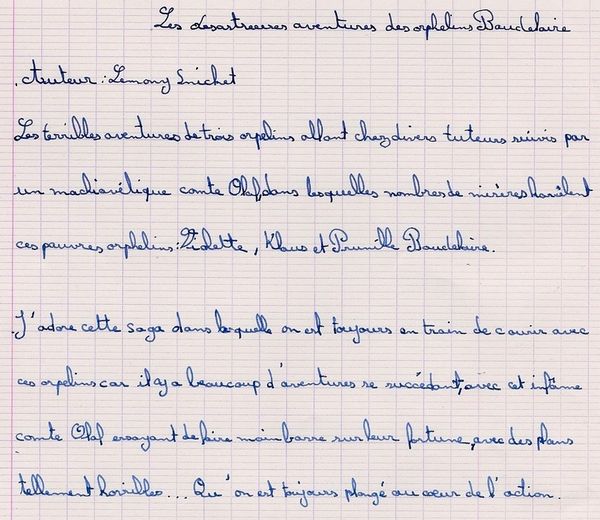 Les desastreuses aventures des orphelins Baudelaire
Auteur : Lemony Snicket
Les terribles aventures de trois orpelins allant chez divers tuteurs suivis par
un machiavélique comte Olaf, dans lesquelles nombres de misères harcèlent
ces pauvres orphelins : Violette, Klaus et Prunille Baudelaire.
J'adore cette saga dans laquelle on est toujours en train de courir avec
ces orpelins car il y a beaucoup d'aventures se succédant, avec cet infâme
comte Olaf essayant de faire main basse sur leur fortune, avec des plans
tellement horribles... Qu'on est toujours plongé au cœur de l'action.